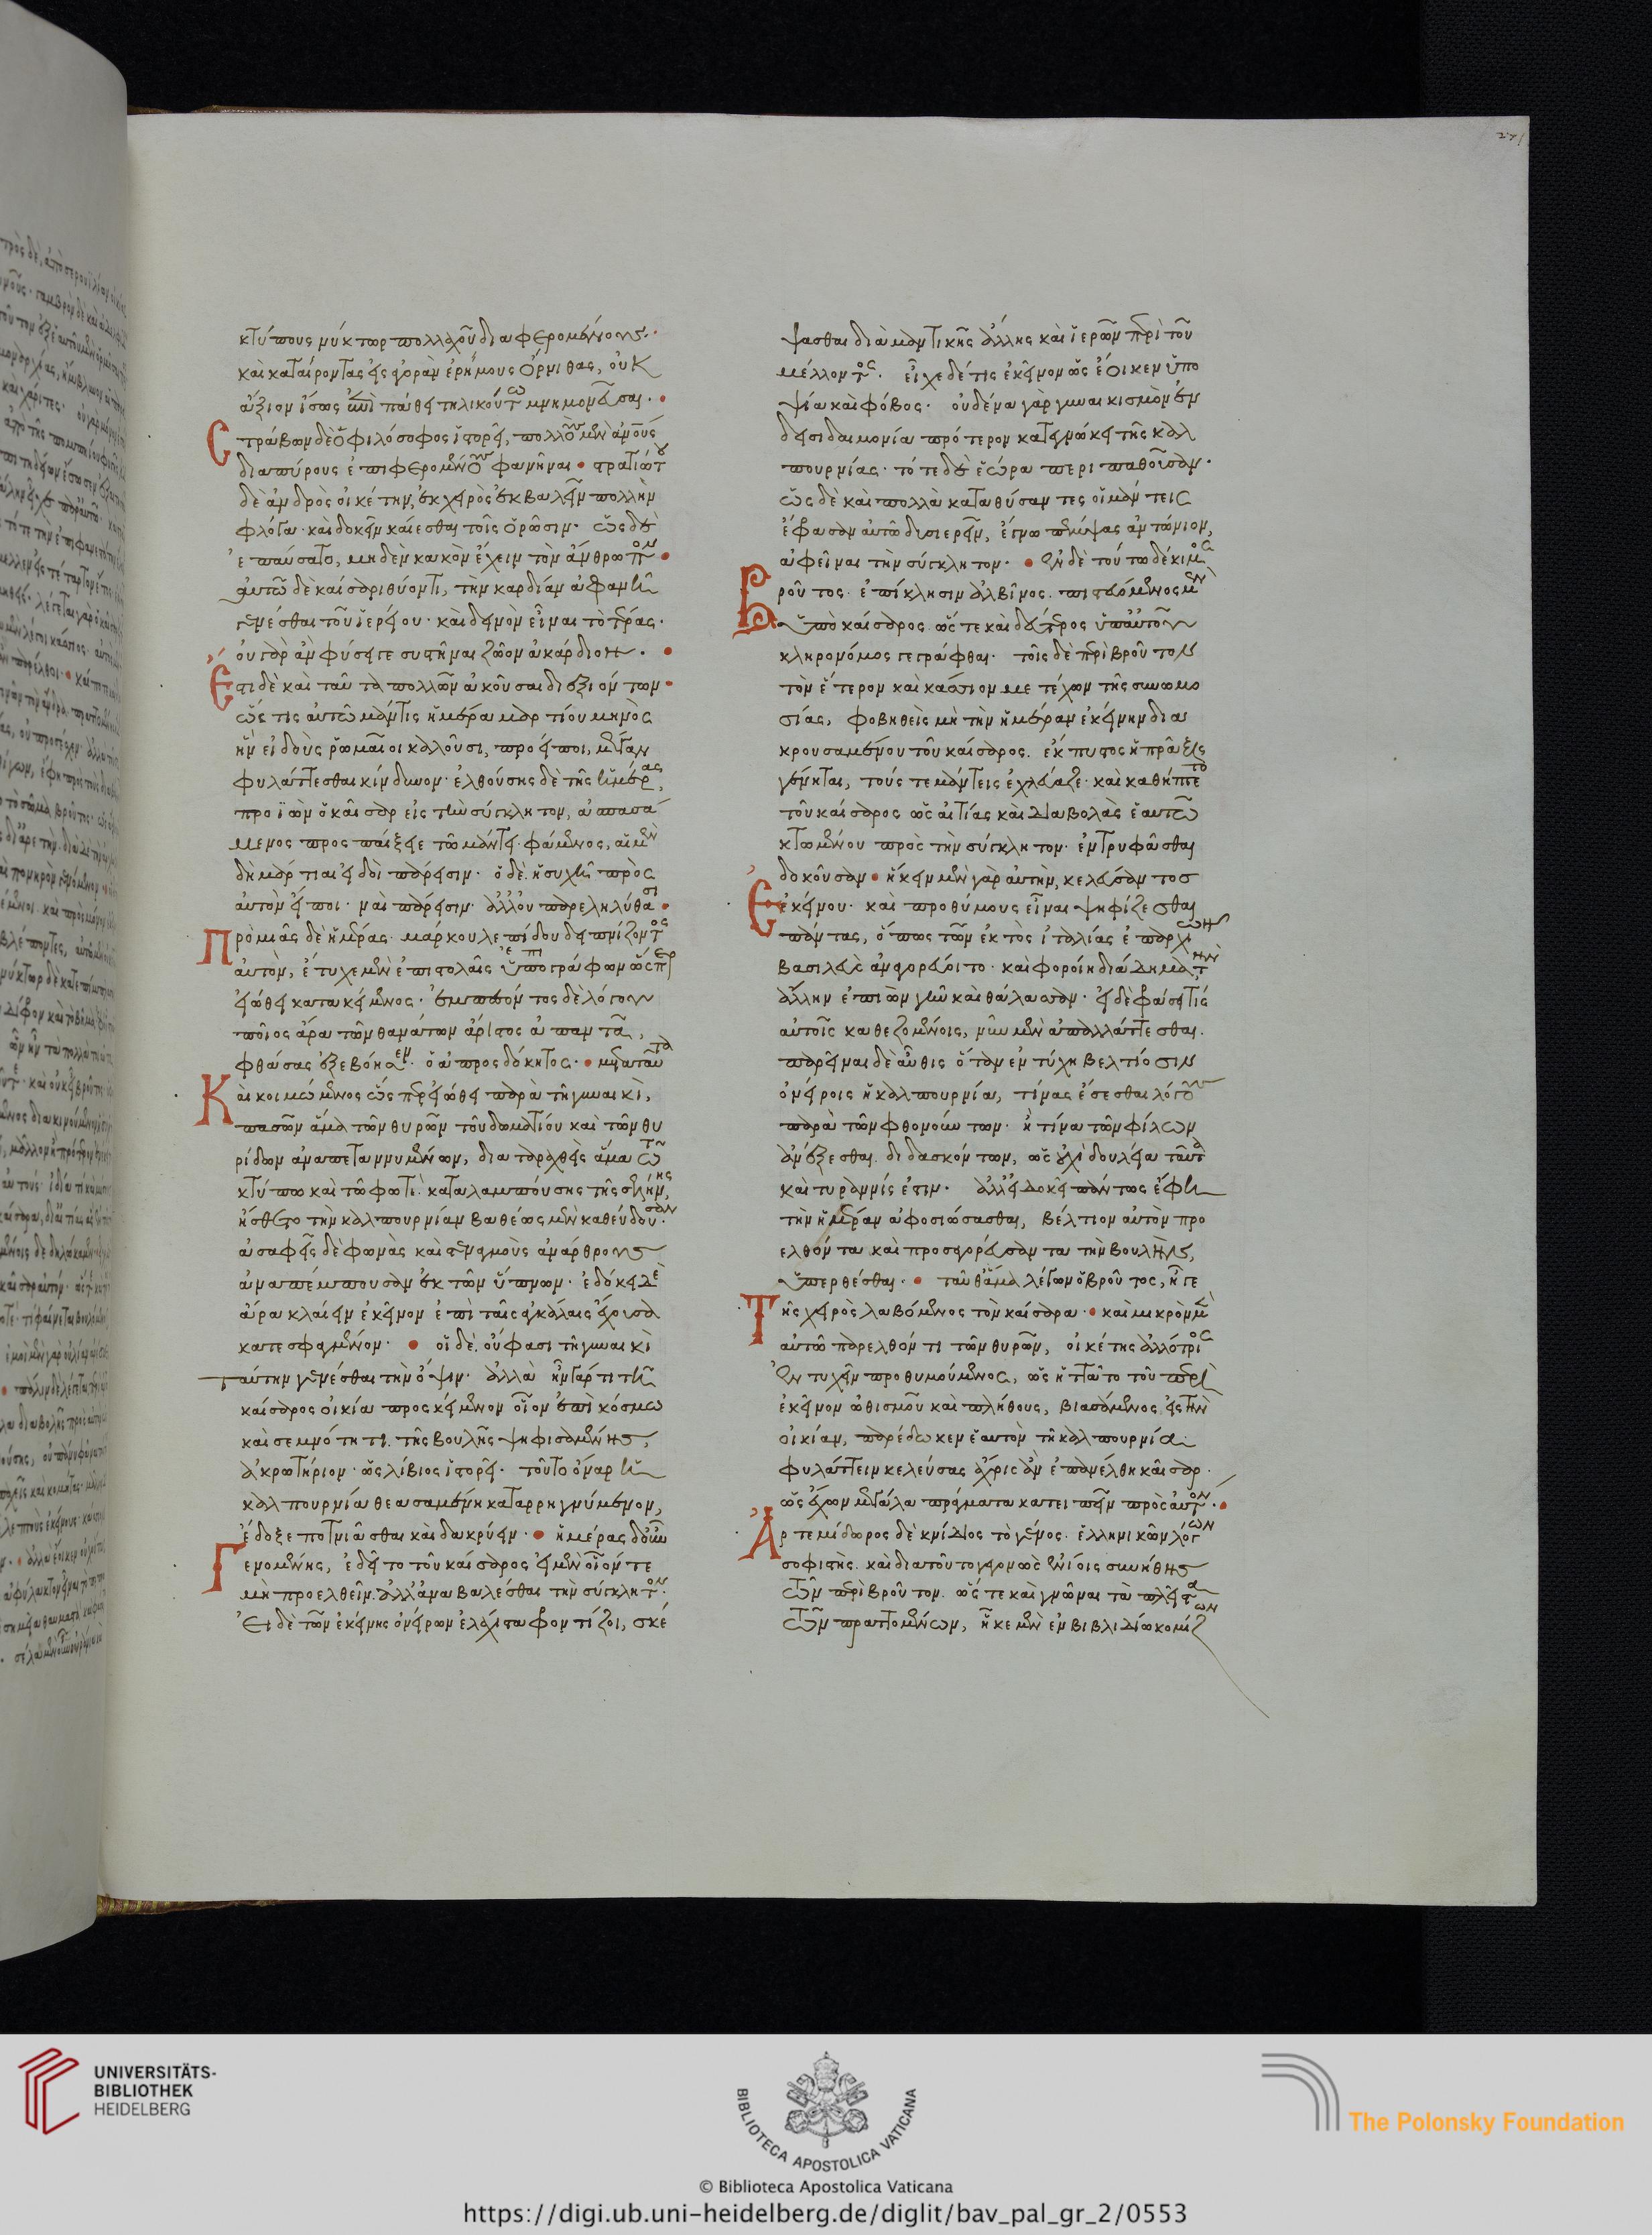 271
κτύπους νύκτωρ πολλαχοῦ διαφερομένους.
καὶ καταίροντας εἰς ἀγορὰν ἐρήμους ὄρνιθας, οὐκ
ἄξιον ἴσως ἐπὶ πάθει τηλικούτω μνημονεῦσαι.
Στράβων δὲ ὁ φιλόσοφος ἱστορεῖ, πολλοῖς μὲν ἀνους
διαπύρους ἐπιφερομένους φανῆναι. στρατιώτου
δὲ ἀνδρὸς οἰκέτην, ἐκ χειρὸς ἐκβαλεῖν πολλὴν
φλόγα. καὶ δοκεῖν καίεσθαι τοῖς ὁρῶσιν. ὡς δὲ
ἐπαύσατο, μηδὲν κακὸν ἔχειν τὸν ἄνθρωπον.
αὐτῶ δὲ καίσαρι θύοντι, τὴν καρδίαν ἀφανῆ
γενέσθαι τοῦ ἱερείου. καὶ δεινὸν εἶναι τὸ τέρας.
οὐ γὰρ ἂν φύσει γε συστῆναι ζῶον ἀκάρδιον.
Ἔτι δὲ καὶ ταῦτα πολλῶν ἀκοῦσαι διεξιόντων.
ὥς τις αὐτῶ μάντις ἡμέρα μαρτίου μηνὸς
ἣν εἰδοὺς ῥωμαῖοι καλοῦσι, προείποι, μέγαν
φυλάττεσθαι κίνδυνον. ἐλθούσης δὲ τῆς ἡμέρας,
προϊὼν ὁ καῖσαρ εἰς τὴν σύγκλητον, ἀσπασά
μενος προσπαίξειε τῶ μάντει φάμενος, αἱ μὲν
δὴ μάρτιαι εἰδοὶ πάρεισιν. ὁ δὲ ἡσυχῆ πρὸς
αὐτὸν εἴποι. ναὶ πάρεισιν. ἀλλ' οὐ παρεληλύθασι.
Πρὸ μιᾶς δὲ ἡμέρας. μάρκου λεπίδου δειπνίζοντος
αὐτὸν, ἔτυχε μὲν ἐπιστολαῖς ὑπογράφων ὥσπερ
εἰώθει κατακείμενος. ἐμπεσόντος δὲ λόγου
ποῖος ἄρα τῶν θανάτων ἄριστος ἁπάντας,
φθάσας ἐξεβόησεν. ὁ ἀπροσδόκητος. μετὰ ταῦτα
Καὶ κοιμώμενος ὥσπερ εἰώθει παρὰ τῆ γυναικὶ,
πασῶν ἅμα τῶν θυρῶν τοῦ δωματίου καὶ τῶν θυ
ρίδων ἀναπεταννυμένων, διαταραχθεὶς ἅμα τῶ
κτύπω καὶ τῶ φωτὶ καταλαμπούσης τῆς σελήνης,
ἤσθετο τὴν καλπουρνίαν βαθέως μὲν καθεύδουσαν.
ἀσαφεῖς δὲ φωνὰς καὶ στεναγμοὺς ἀνάρθρους
ἀναπέμπουσαν ἐκ τῶν ὕπνων. ἐδόκει δὲ
ἄρα κλαίειν ἐκεῖνον ἐπὶ ταῖς ἀγκάλαις ἔχουσα
κατεσφαγμένον. οἱ δὲ, οὔ φασι τῆ γυναικὶ
ταύτην γενέσθαι τὴν ὄψιν. ἀλλὰ ἦν γάρ τι τῆ
καίσαρος οἰκία προσκείμενον οἷον ἐπὶ κόσμω
καὶ σεμνότητι. τῆς βουλῆς ψηφισαμένης,
ἀκρωτήριον. ὡς λίβιος ἱστορεῖ. τοῦτο ὄναρ ἡ
καλπουρνία θεασαμένη καταρρηγνύμενον,
ἔδοξε ποτνιᾶσθαι καὶ δακρύειν. ἡμέρας δ' οὖν
Γενομένης, ἐδεῖτο τοῦ καίσαρος εἰ μὲν οἷόν τε
μὴ προελθεῖν. ἀλλ' ἀναβαλέσθαι τὴν σύγκλητον.
Εἰ δὲ τῶν ἐκείνης ὀνείρων ἐλάχιστα φροντίζοι, σκέ
ψασθαι διὰ μαντικῆς ἄλλης καὶ ἱερῶν περὶ τοῦ
μέλλοντος. εἶχε δέ τις ἐκεῖνον ὡς ἔοικεν ὑπο
ψία καὶ φόβος. οὐδένα γὰρ γυναικισμὸν ἐν
δεισιδαιμονία πρότερον κατεγνώκει τῆς καλ
πουρνίας. τότε δὲ ἑώρα περιπαθοῦσαν.
ὡς δὲ καὶ πολλὰ καταθύσαντες οἱ μάντεις
ἔφασαν αὐτῶ δυσιερεῖν, ἔγνω πέμψας ἀντώνιον,
ἀφεῖναι τὴν σύγκλητον. ἐν δὲ τούτω δέκιμος
Βροῦτος. ἐπίκλησιν ἀλβῖνος. πιστευόμενος μὲν
ὑπὸ καίσαρος ὥστε καὶ δεύτερος ὑπ' αὐτοῦ
κληρονόμος γεγράφθαι. τοῖς δὲ περὶ βροῦτον
τὸν ἕτερον καὶ κάσσιον μετέχων τῆς συνωμο
σίας, φοβηθεὶς μὴ τὴν ἡμέραν ἐκείνην δια
κρουσαμένου τοῦ καίσαρος. ἔκπυστος ἡ πρᾶξις
γένηται, τούς τε μάντεις ἐχλεύαζε. καὶ καθήπτετο
τοῦ καίσαρος ὡς αἰτίας καὶ διαβολὰς ἑαυτῶ
κτωμένου πρὸς τὴν σύγκλητον. ἐντρυφᾶσθαι
δοκοῦσαν. ἥκειν μὲν γὰρ αὐτὴν, κελεύσαντος
Ἐκείνου. καὶ προθύμους εἶναι ψηφίζεσθαι
πάντας, ὅπως τῶν ἐκτὸς ἰταλίας ἐπαρχιῶν
βασιλεὺς ἀναγορεύοιτο. καὶ φοροίη διάδημα τὴν
ἄλλην ἐπιὼν γῆν καὶ θάλασσαν. εἰ δὲ φράσει τίς
αὐτοῖς καθεζομένοις, νῦν μὲν ἀπαλλάττεσθαι.
παρεῖναι δὲ αὖθις ὅταν ἐντύχη βελτίοσιν
ὀνείροις ἡ καλπουρνία, τίνας ἔσεσθαι λόγους
παρὰ τῶν φθονούντων. ἢ τίνα τῶν φίλων
ἀνέξεσθαι. διδασκόντων, ὡς οὐχὶ δουλεία ταῦτα
καὶ τυραννίς ἐστιν. ἀλλ' εἰ δοκεῖ πάντως ἔφη
τὴν ἡμέραν ἀφοσιώσασθαι, βέλτιον αὐτὸν προ
ελθόντα καὶ προσαγορεύσαντα τὴν βουλὴν,
ὑπερθέσθαι. ταῦθ' ἅμα λέγων ὁ βροῦτος, ἦγε
Τῆς χειρὸς λαβόμενος τὸν καίσαρα. καὶ μικρὸν μὲν
αὐτῶ παρελθόντι τῶν θυρῶν, οἰκέτης ἀλλότριος
ἐντυχεῖν προθυμούμενος, ὡς ἡττᾶτο τοῦ περὶ
ἐκεῖνον ὠθισμοῦ καὶ πλήθους, βιασάμενος εἰς τὴν
οἰκίαν, παρέδωκεν ἑαυτὸν τῆ καλπουρνία.
φυλάττειν κελεύσας ἄχρις ἂν ἐπανέλθη καῖσαρ.
ὡς ἔχων μεγάλα πράγματα κατειπεῖν πρὸς αὐτόν.
Ἀρτεμίδωρος δὲ κνίδιος τὸ γένος. ἑλληνικῶν λόγων
σοφιστὴς. καὶ διὰ τοῦτο γεγονὼς ἐνίοις συνήθης
τῶν περὶ βροῦτον. ὥστε καὶ γνῶναι τὰ πλεῖστα
τῶν πραττομένων, ἧκε μὲν ἐν βιβλιδίω κομίζων
UNIVERSITÄTS-
BIBLIOTHEK
HEIDELBERG
BIBLIOTECA APOSTOLICA VATICANA
The Polonsky Foundation
© Biblioteca Apostolica Vaticana
https://digi.ub.uni-heidelberg.de/diglit/bav_pal_gr_2/0553